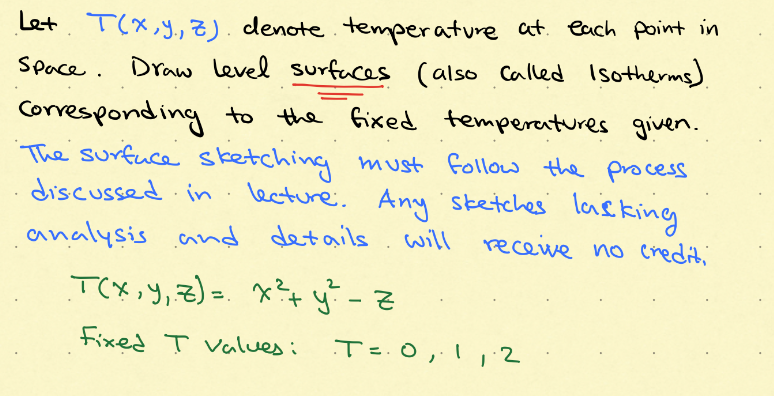 Let T(x,y,z) denote temperature at each point in
space. Draw level surfaces (also called Isotherms)
corresponding to the fixed temperatures given.
The surface sketching must follow the process
discussed in lecture. Any sketches lacking
analysis and details will receive no credit.
T(x,y,z) = x²+ y² - z
Fixed T values: T = 0, 1, 2